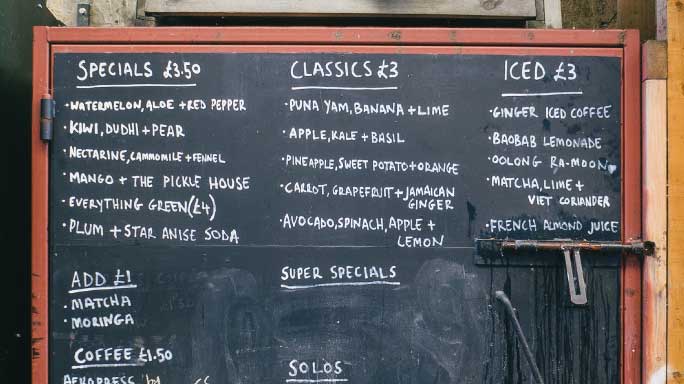 SPECIALS £3.50
• WATERMELON, ALOE + RED PEPPER
• KIWI, DUDHI + PEAR
• NECTARINE, CAMMOMILE + FENNEL
• MANGO + THE PICKLE HOUSE
• EVERYTHING GREEN (£4)
• PLUM + STAR ANISE SODA
ADD £1
• MATCHA
• MORINGA
COFFEE £1.50
AEROPRESS
CLASSICS £3
• PUNA YAM, BANANA + LIME
• APPLE, KALE + BASIL
• PINEAPPLE, SWEET POTATO + ORANGE
• CARROT, GRAPEFRUIT + JAMAICAN
GINGER
• AVOCADO, SPINACH, APPLE +
LEMON
SUPER SPECIALS
SOLOS
ICED £3
• GINGER ICED COFFEE
• BAOBAB LEMONADE
• OOLONG RA-MOON
• MATCHA, LIME +
VIET CORIANDER
• FRENCH ALMOND JUICE